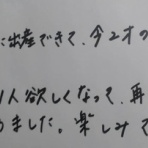 に出産できて、今2才の
1人欲しくなって、再
りました。楽しみで